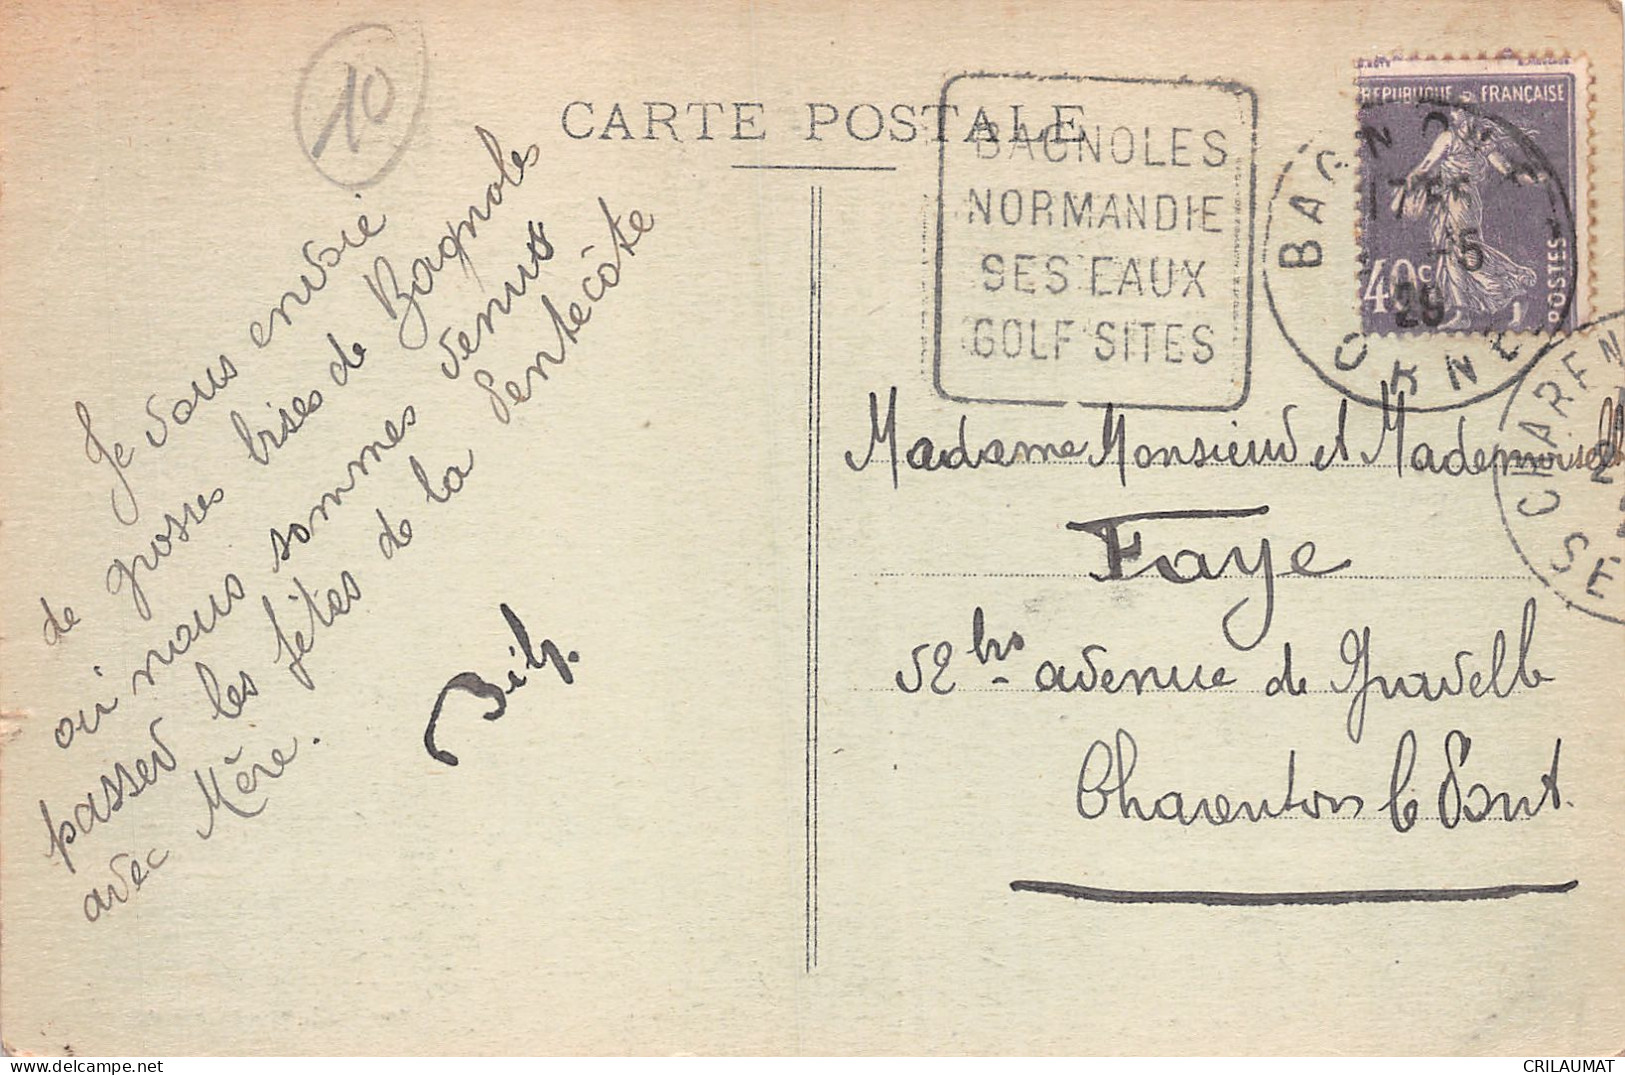 10
CARTE POSTALE
BAGNOLES
NORMANDIE
SES EAUX
GOLF SITES
REPUBLIQUE FRANÇAISE
40c
POSTES
BAGNO
17
-5
29
ORNE
CHAREN
SEINE
Je vous envoie
de grosses bises de Bagnoles
où nous sommes venus
passer les fêtes de la Pentecôte
avec Mère.
Madame Monsieur et Mademoiselle
Faye
52 bis avenue de Gravelle
Charenton le Pont.
CRILAUMAT